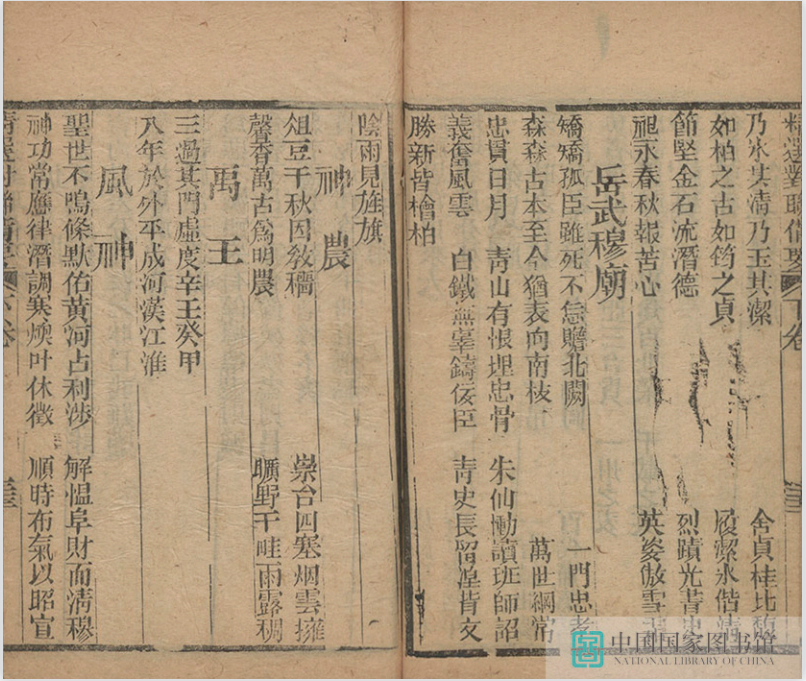 下卷
乃氷其清乃玉其潔 貞桂比馥
如柏之古如筠之貞 履潔氷偕清
節堅金石流潛德 烈蹟光青史
祀永春秋報苦心 英姿傲雪
岳武穆廟
矯矯孤臣雖死不忘瞻北闕 一門忠孝
森森古本至今猶表向南枝 萬世綱常
忠貫日月 青山有恨埋忠骨 朱仙慟讀班師詔
義奮風雲 白鐵無辜鑄佞臣 青史長留湼背文
勝新皆檜柏
陰雨見旌旗
神農
俎豆千秋因教穡 崇台四塞烟雲擁
馨香萬古爲明農 曠野千畦雨露稠
禹王
三過其門虛度辛壬癸甲
八年於外平成河漢江淮
風神
聖世不鳴條默佑黃河占利涉 解慍阜財而清穆
神功常應律潛調寒燠叶休徵 順時布氣以昭宣
下卷
中国国家图书馆
NATIONAL LIBRARY OF CHINA